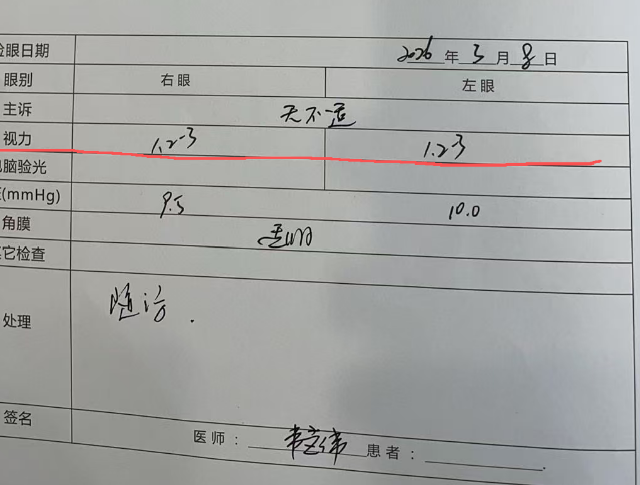 验眼日期 2026 年 3 月 8 日
眼别 右眼 左眼
主诉 无不适
视力 1.2-3 1.2-3
脑验光
(mmHg) 9.5 10.0
角膜 透明
它检查
处理 随访.
签名 医师: 患者: